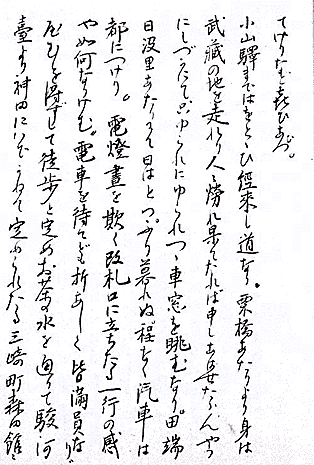 てけりたむ喜びあへり。
小山驛まではをとゝひ經來し道なり。栗橋あたりより身は
武藏の地を走れり人々勞れ果てたれば申し出要ならんやう
にしづかにて只ゆられにゆられつゝ車窓を眺むなり。田端
日没里あたりにて日はとつぷり暮れぬ程なく汽車は
都につけり。電燈晝を欺く改札口に立ちたる一行の感
やぬ何なりけむ。電車を待てども折あしく皆滿員なり
屋むを得ずして徒歩と定めお茶の水を過ぎて駿河
臺より神田にいでかねて定められたる三崎町森田館に